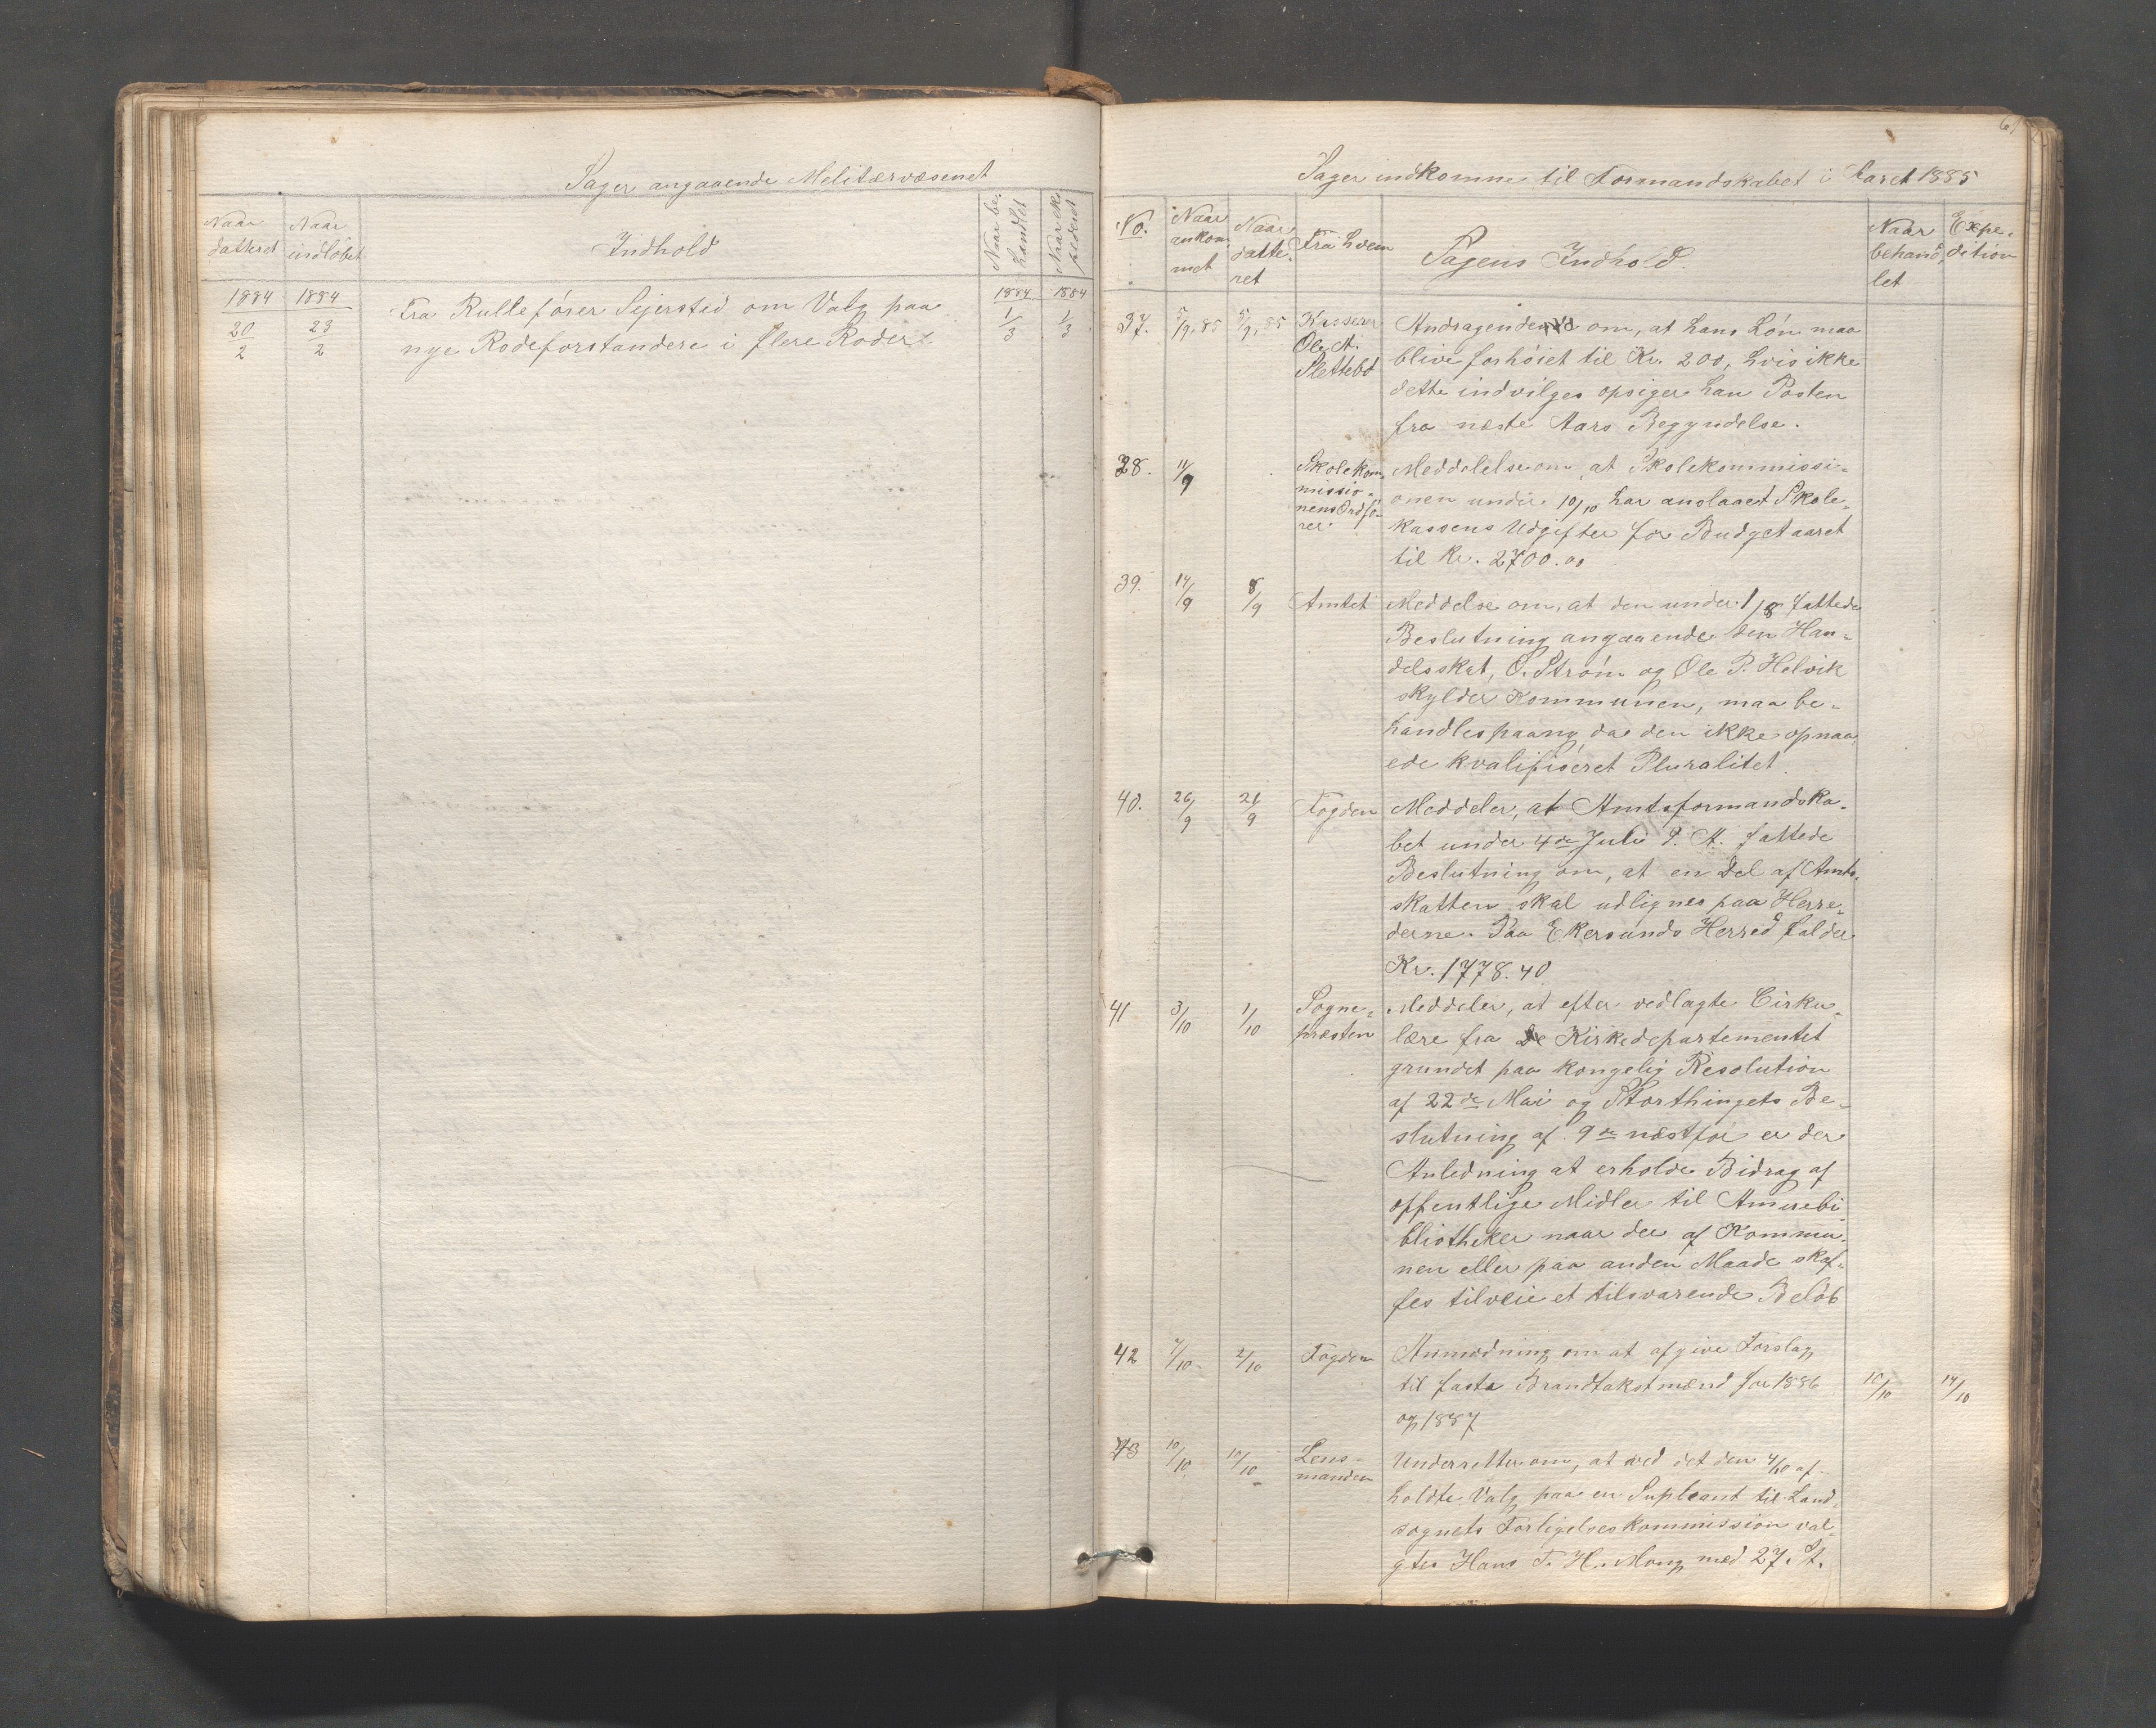 Sager angaaende Melitærvæsenet
Naar datteret | Naar indløbet | Indhold | Naar behandlet | Naar ekspederet
1884 | 1884 | 1884 | 1884
20/2 | 23/2 | Fra Rullefører Sejersted om Valg paa | 1/3 | 1/3
nye Rodeforstandere i flere Roder
61
Sager indkomne til Formandskabet i Aaret 1885
No. | Naar ankommet | Naar datteret | Fra hvem | Sagens Indhold | Naar behandlet | Expedition
37. | 5/9, 85 | 5/9, 85 | Kasserer Ole A. Slettebø | Andragende om, at hans Løn maa
blive forhøiet til Kr. 200, hvis ikke
dette indvilges opsiger han Posten
fra næste Aars Begyndelse.
38. | 11/9 | Skolekommissionens Ordfører | Meddelelse om, at Skolekommissi-
onen under 10/10 har anslaaet Skole-
kassens Udgifter for Budgetaaret
til Kr. 2700.00
39. | 14/9 | 8/9 | Amtet | Meddelse om, at den under 1/8 fattede
Beslutning angaaende den Han-
delsskat, O. Strøm og Ole P. Helvik
skylder Kommunen, maa be-
handles paany, da den ikke opnaa-
ede kvalifiseret Pluralitet
40. | 26/9 | 21/9 | Fogden | Meddeler, at Amtsformandska-
bet under 4de Juli d. A. fattede
Beslutning om, at en Del af Amts-
skatten skal udlignes paa Herre-
derne. Paa Ekersunds Herred falder
Kr. 1778.40
41 | 3/10 | 1/10 | Sogne-præsten | Meddeler, at efter vedlagte Cirku-
lære fra Kirkedepartementet
grundet paa kongelig Resolution
af 22de Mai og Storthingets Be-
slutning af 9de næstfør er der
Anledning at erholde Bidrag af
offentlige Midler til Almuebi-
bliotheker naar der af Kommu-
nen eller paa anden Maade skaf-
fes tilveie et tilsvarende Beløb
42 | 7/10 | 2/10 | Fogden | Anmodning om at afgive Forslag
til faste Brandtakstmænd for 1886 | 10/10 | 14/10
og 1887
43 | 10/10 | 10/10 | Lens-manden | Underretter om, at ved det den 4/10 af-
holdte Valg paa en Supleant til Land-
sognets Forligelseskommission val-
gtes Hans T. H. Mong med 27 St.